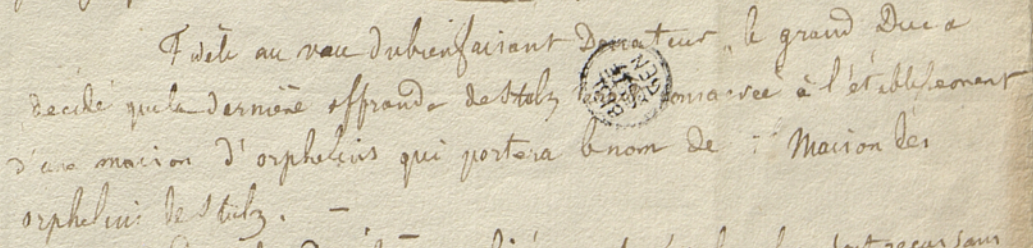 Fidèle au vœu du bienfaisant Donateur, le grand Duc a
décidé que la dernière offrande de Stulz sera consacrée à l'établissement
d'une maison d'orphelins qui portera le nom de : Maison des
orphelins de Stulz. —
sont reçus sans